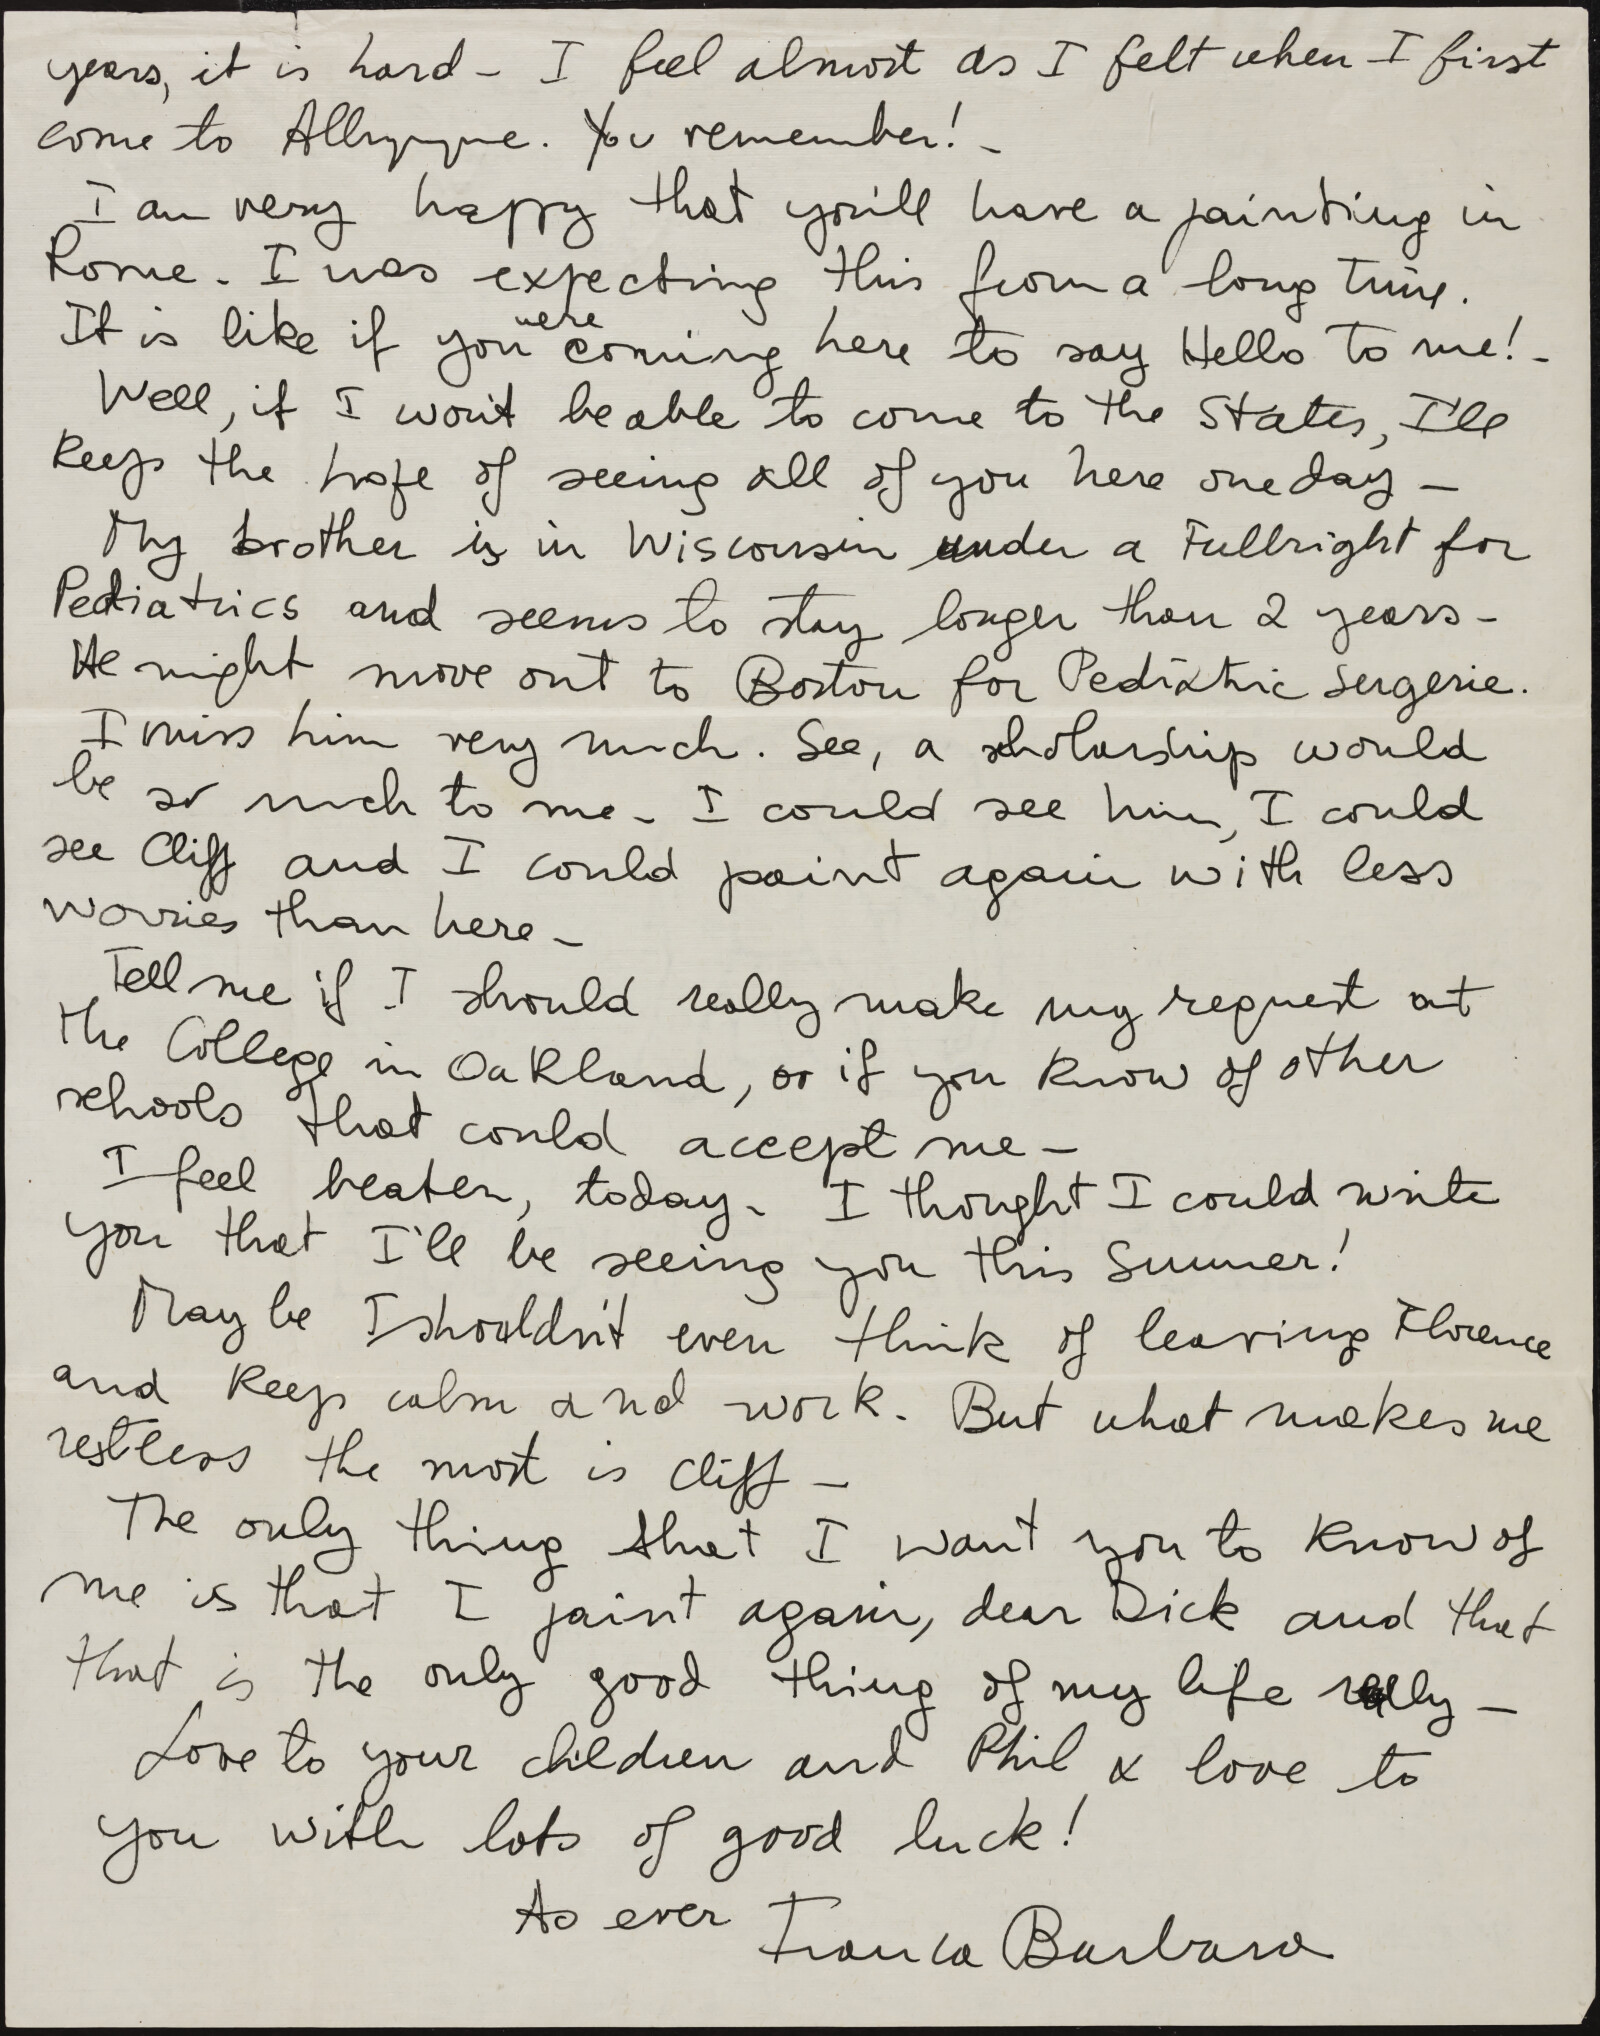 years, it is hard - I feel almost as I felt when I first
come to Albuquque. You remember! -
I am very happy that you'll have a painting in
Rome - I was expecting this from a long time.
It is like if you were coming here to say Hello to me! -
Well, if I won't be able to come to the States, I'll
keep the hope of seeing all of you here one day -
My brother is in Wisconsin under a Fullbright for
Pediatrics and seems to stay longer than 2 years -
He might move out to Boston for Pediatric sergerie.
I miss him very much. See, a scholarship would
be so much to me - I could see him, I could
see Cliff and I could paint again with less
worries than here -
Tell me if I should really make my request at
the College in Oakland, or if you know of other
schools that could accept me -
I feel beaten, today - I thought I could write
you that I'll be seeing you this Summer!
May be I shouldn't even think of leaving Florence
and keep calm and work. But what makes me
restless the most is Cliff -
The only thing that I want you to know of
me is that I paint again, dear Dick and that
that is the only good thing of my life really -
Love to your children and Phil & love to
you with lots of good luck!
As ever Franca Barbara